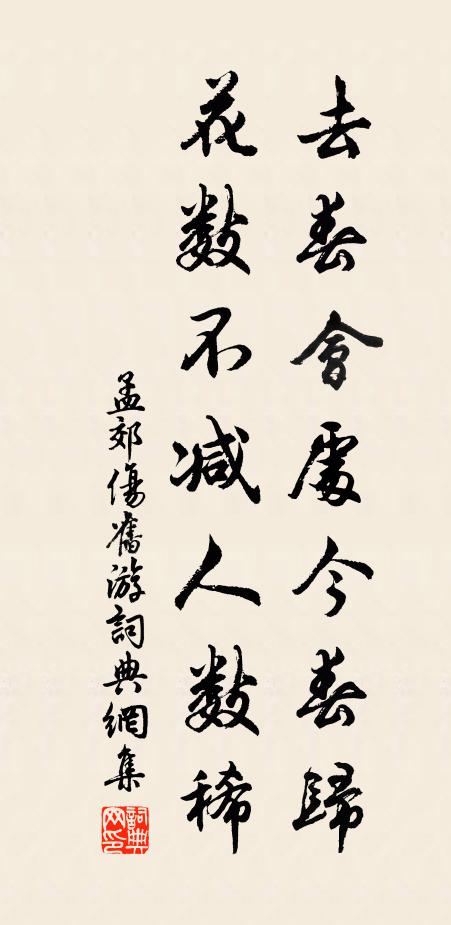 去春會處今春歸
花數不減人數稀
孟郊傷舊游詞典網集
詞典網印